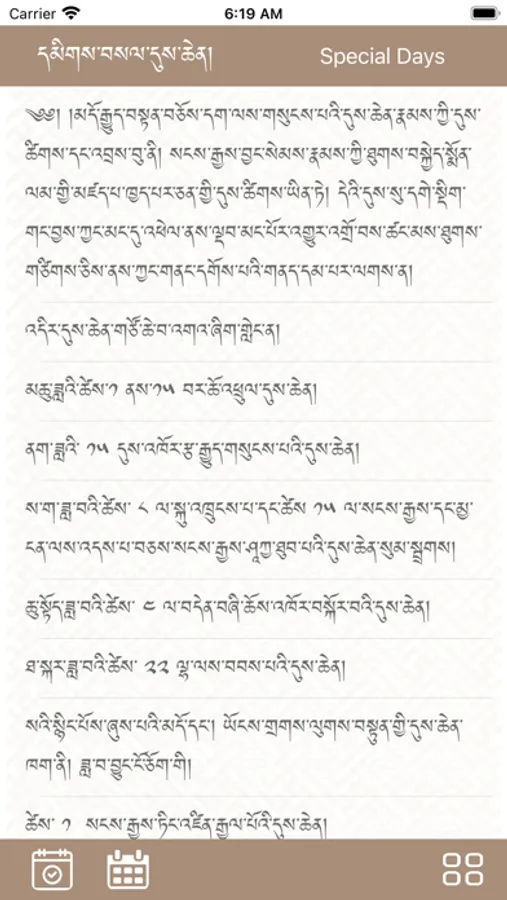 Carrier 6:19 AM
དམིགས་བསལ་དུས་ཆེན། Special Days
༄༅། །མདོ་རྒྱུད་བསྟན་བཅོས་དག་ལས་གསུངས་པའི་དུས་ཆེན་རྣམས་ཀྱི་དུས་
ཚིགས་དང་འབྲས་བུ་ནི། སངས་རྒྱས་བྱང་སེམས་རྣམས་ཀྱི་ཐུགས་བསྐྱེད་སྨོན་
ལམ་གྱི་མཛད་པ་ཁྱད་པར་ཅན་གྱི་དུས་ཚིགས་ཡིན་ཏེ། དེའི་དུས་སུ་དགེ་སྡིག་
གང་བྱས་ཀྱང་མང་དུ་འཕེལ་ནས་ལྡབ་མང་པོར་འགྱུར་འགྲོ་བས་ཚང་མས་ཐུགས་
གཙིགས་ཅིས་ནས་ཀྱང་གནང་དགོས་པའི་གནད་དམ་པར་ལགས་ན།
འདིར་དུས་ཆེན་གཙོ་ཆེ་བ་འགའ་ཞིག་གླེང་ན།
མཆུ་ཟླའི་ཚེས་༡ ནས་༡༥ བར་ཆོ་འཕྲུལ་དུས་ཆེན།
ནག་ཟླའི་ ༡༥ དུས་འཁོར་རྩ་རྒྱུད་གསུངས་པའི་དུས་ཆེན།
ས་ག་ཟླ་བའི་ཚེས་ ༨ ལ་སྐུ་འཁྲུངས་པ་དང་ཚེས ༡༥ ལ་སངས་རྒྱས་དང་མྱ་
ངན་ལས་འདས་པ་བཅས་སངས་རྒྱས་ཤཱཀྱ་ཐུབ་པའི་དུས་ཆེན་སུམ་སྦྲགས།
ཆུ་སྟོད་ཟླ་བའི་ཚེས་ ༤ ལ་བདེན་བཞི་ཆོས་འཁོར་བསྐོར་བའི་དུས་ཆེན།
ཐ་སྐར་ཟླ་བའི་ཚེས་ ༢༢ ལྷ་ལས་བབས་པའི་དུས་ཆེན།
སའི་སྙིང་པོས་ཞུས་པའི་མདོ་དང་། ཡོངས་གྲགས་ལུགས་བསྟུན་གྱི་དུས་ཆེན་
ཁག་ནི། ཟླ་བ་བྱུང་ངོ་ཅོག་གི།
ཚེས་ ༡ སངས་རྒྱས་ཏིང་འཛིན་རྒྱལ་པོའི་དུས་ཆེན།